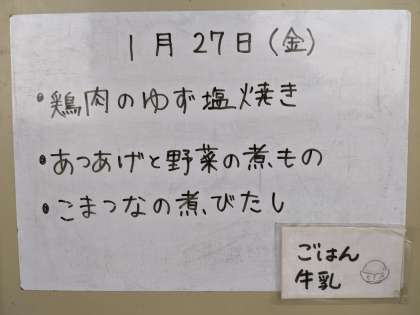 1月27日(金)
・鶏肉のゆず塩焼き
・あつあげと野菜の煮もの
・こまつなの煮びたし
ごはん
牛乳